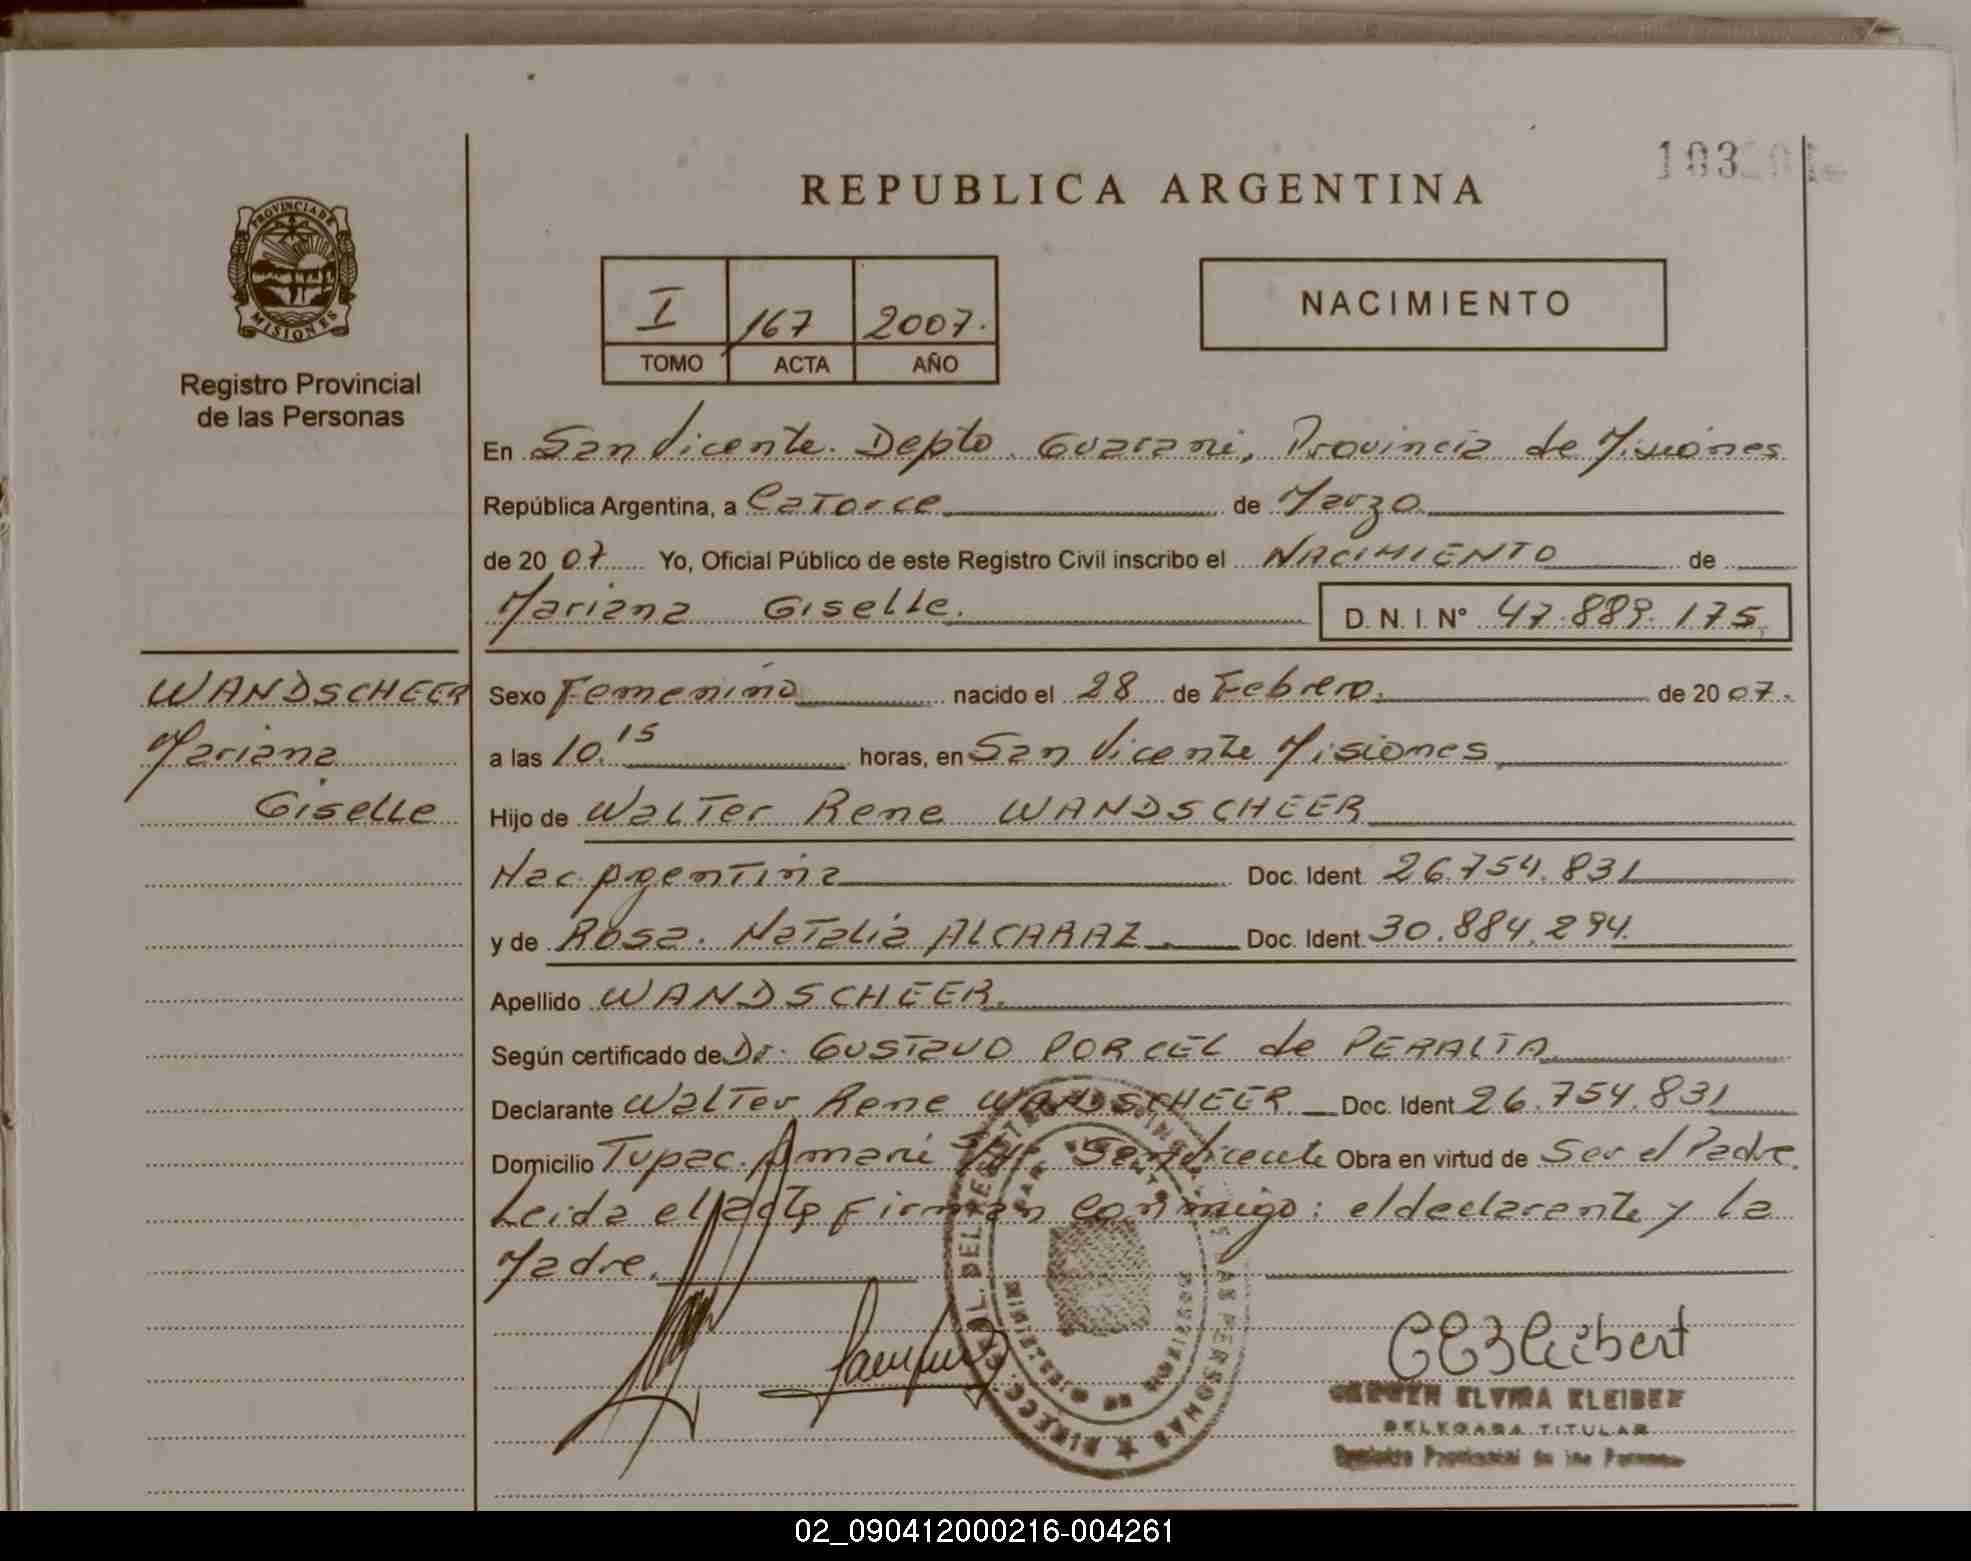 103
REPUBLICA ARGENTINA
PROVINCIA DE
MISIONES
Registro Provincial
de las Personas
I 167 2007.
TOMO ACTA AÑO
NACIMIENTO
En San Vicente. Depto. Guarani, Provincia de Misiones
República Argentina, a Catorce de Marzo
de 20 07 Yo, Oficial Público de este Registro Civil inscribo el NACIMIENTO de
Mariana Giselle. D. N. I. N° 47.889.175
WANDSCHEER
Mariana
Giselle
Sexo Femenino nacido el 28 de Febrero. de 20 07.
a las 10.15 horas, en San Vicente Misiones
Hijo de Walter Rene WANDSCHEER
Nac. Agentina Doc. Ident 26.754.831
y de Rosa. Natalia ALCARAZ Doc. Ident. 30.884.294
Apellido WANDSCHEER.
Según certificado de Dr. GUSTAVO PORCEL de PERALTA
Declarante Walter Rene WANDSCHEER Doc. Ident 26.754.831
Domicilio Tupac. Amarú San Vicente Obra en virtud de Ser el Padre.
Leida el acta firman conmigo: el declarante y la
Madre.
CARMEN ELVIRA KLEIBER
DELEGADA TITULAR
Registro Provincial de las Personas
02_090412000216-004261